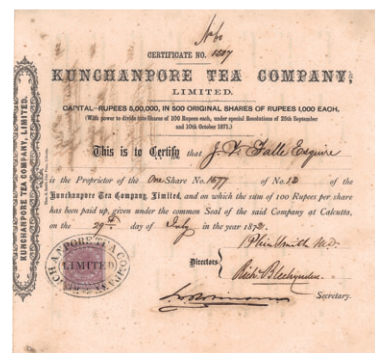 No
CERTIFICATE NO. 1587
KUNCHANPORE TEA COMPANY,
LIMITED.
CAPITAL—RUPEES 5,00,000, IN 500 ORIGINAL SHARES OF RUPEES 1,000 EACH,
(With power to divide into Shares of 100 Rupees each, under special Resolutions of 25th September
and 10th October 1871.)
This is to Certify that J. V. Falle Esquire
is the Proprietor of the One Share No. 1677 of No. 12 of the
Kunchanpore Tea Company, Limited, and on which the sum of 100 Rupees per share
has been paid up, given under the common Seal of the said Company at Calcutta,
on the 29th day of July in the year 1872.
Directors
Secretary.
KUNCHANPORE TEA COMPANY, LIMITED.
KUNCHANPORE TEA COMPANY
LIMITED